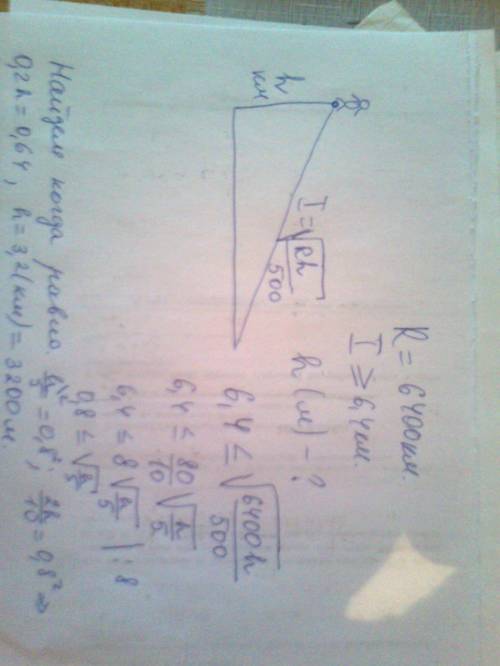 R = 6400 км.
I ⩾ 6,4 км.
h км
I = √(Rh/500)
h (м) – ?
6,4 ≤ √(6400h/500)
6,4 ≤ 80/10 √(h/5)
6,4 ≤ 8√(h/5) | : 8
0,8 ≤ √(h/5)
Найдем когда равно. h/5 = 0,8²; 2h/10 = 0,8² ⇒
0,2h = 0,64, h = 3,2(км) = 3200 м.